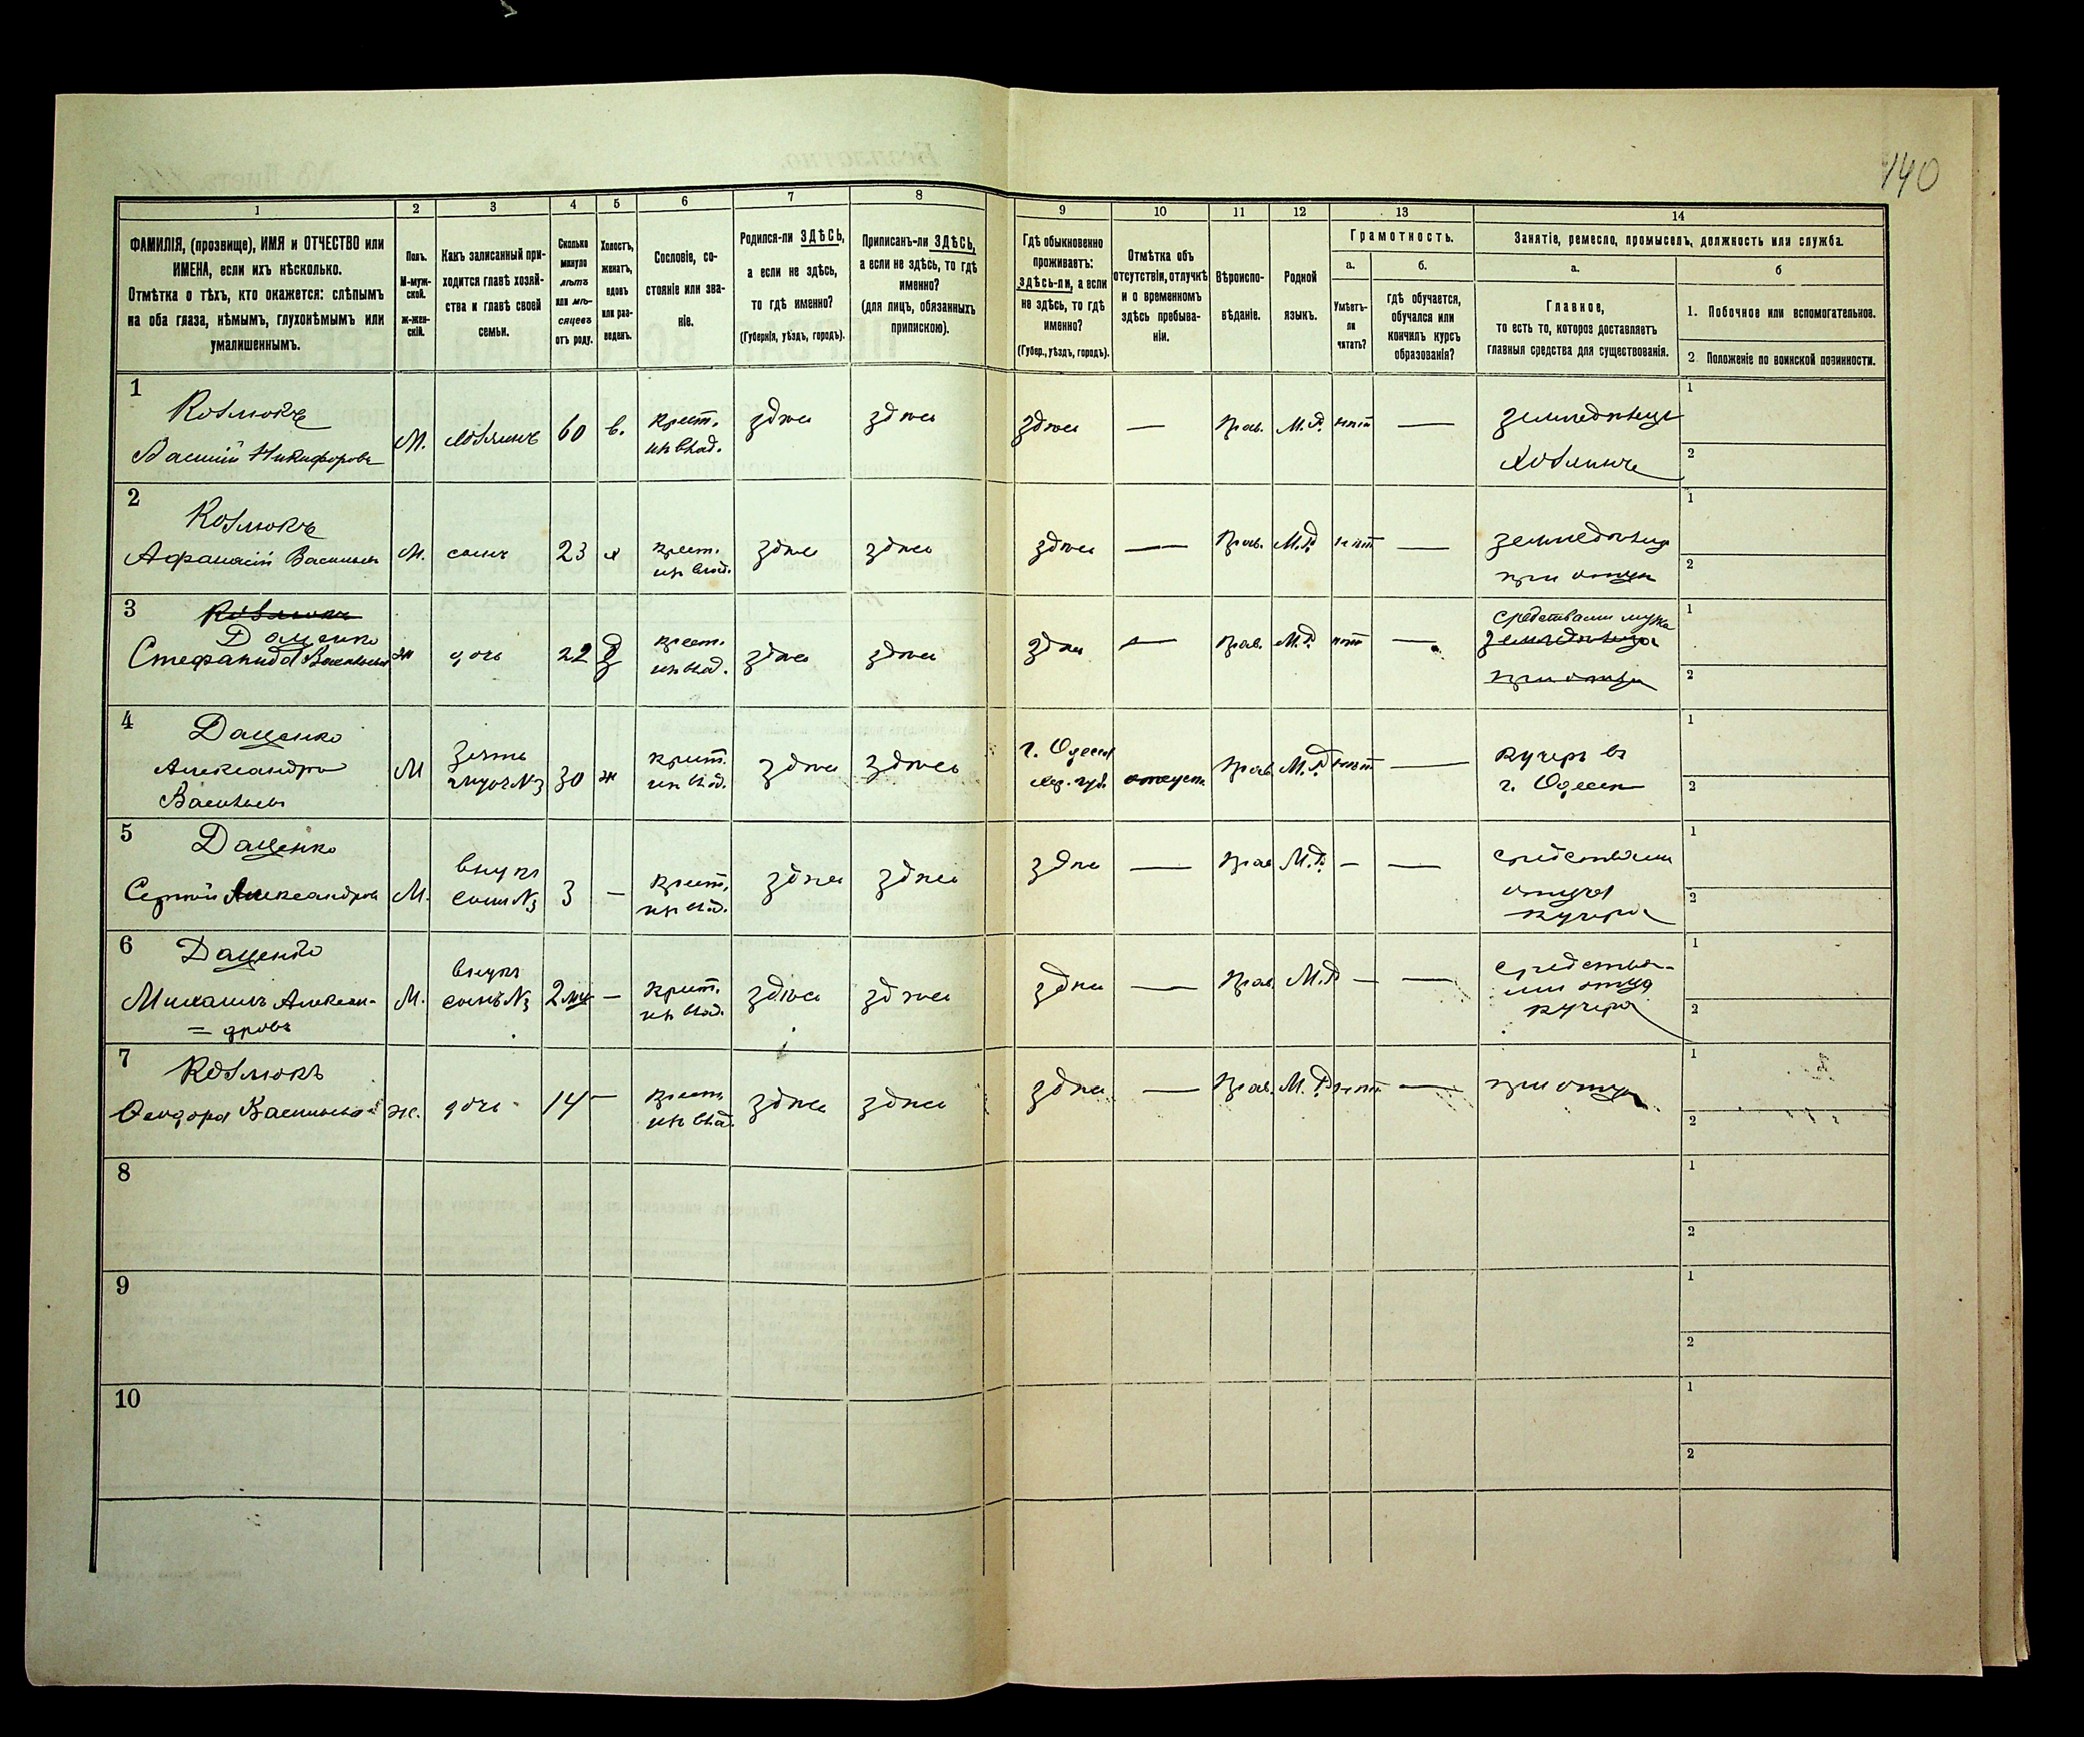 140
1 2 3 4 5 6 7 8 9 10 11 12 13 14
ФАМИЛІЯ, (прозвище), ИМЯ и ОТЧЕСТВО или
ИМЕНА, если ихъ нѣсколько.
Отмѣтка о тѣхъ, кто окажется: слѣпымъ
на оба глаза, нѣмымъ, глухонѣмымъ или
умалишеннымъ.
Полъ.
М-муж-
ской.
ж-жен-
скій.
Какъ записанный при-
ходится главѣ хозяй-
ства и главѣ своей
семьи.
Сколько
минуло
лѣтъ
или мѣ-
сяцевъ
отъ роду.
Холостъ,
женатъ,
вдовъ
или раз-
веденъ.
Сословіе, со-
стояніе или зва-
ніе.
Родился-ли ЗДѢСЬ,
а если не здѣсь,
то гдѣ именно?
(Губернія, уѣздъ, городъ).
Приписанъ-ли ЗДѢСЬ,
а если не здѣсь, то гдѣ
именно?
(для лицъ, обязанныхъ
припискою).
Гдѣ обыкновенно
проживаетъ:
здѣсь-ли, а если
не здѣсь, то гдѣ
именно?
(Губер., уѣздъ, городъ).
Отмѣтка объ
отсутствіи, отлучкѣ
и о временномъ
здѣсь пребыва-
ніи.
Вѣроиспо-
вѣданіе.
Родной
языкъ.
Грамотность.
а.
Умѣетъ-
ли
читать?
б.
гдѣ обучается,
обучался или
кончилъ курсъ
образованія?
Занятіе, ремесло, промыселъ, должность или служба.
а.
Главное,
то есть то, которое доставляетъ
главныя средства для существованія.
б
1. Побочное или вспомогательное.
2 Положеніе по воинской повинности.
1
Козлюкъ
Василій Никифоровъ
М. хозяинъ 60 в. крест.
из влад.
здѣсь здѣсь здѣсь — Прав. М.Р. нѣтъ —
земледѣлецъ
хозяинъ
1
2
2
Козлюкъ
Афанасій Васильевъ
М. сынъ 23 х крест.
из влад.
здѣсь здѣсь здѣсь — Прав. М.Р. нѣтъ —
земледѣлецъ
при отцѣ
1
2
3
Козлюкъ
Даценко
Стефанида Васильева
ж дочь 22 З крест.
из влад.
здѣсь здѣсь здѣсь — Прав. М.Р. нѣтъ —
средствами мужа
земледѣлица
при отцѣ
1
2
4
Даценко
Александръ
Васильевъ
М Зять
мужъ №3
30 ж крест.
из влад.
здѣсь здѣсь г. Одесса
Хер. губ.
отсутст. Прав. М.Р. нѣтъ —
кучеръ въ
г. Одессѣ
1
2
5
Даценко
Сергѣй Александровъ
М. внукъ
сынъ №3
3 — крест.
из влад.
здѣсь здѣсь здѣсь — Прав. М.Р. — —
средствами
отца
кучера
1
2
6
Даценко
Михаилъ Алексан-
= дровъ
М. внукъ
сынъ №3
2 мц — крест.
из влад.
здѣсь здѣсь здѣсь — Прав. М.Р. — —
средства-
ми отца
кучера
1
2
7
Козлюкъ
Феодора Васильева
ж. дочь 14 — крест.
из влад.
здѣсь здѣсь здѣсь — Прав. М.Р. нѣтъ —
при отцѣ
1
2
8
1
2
9
1
2
10
1
2